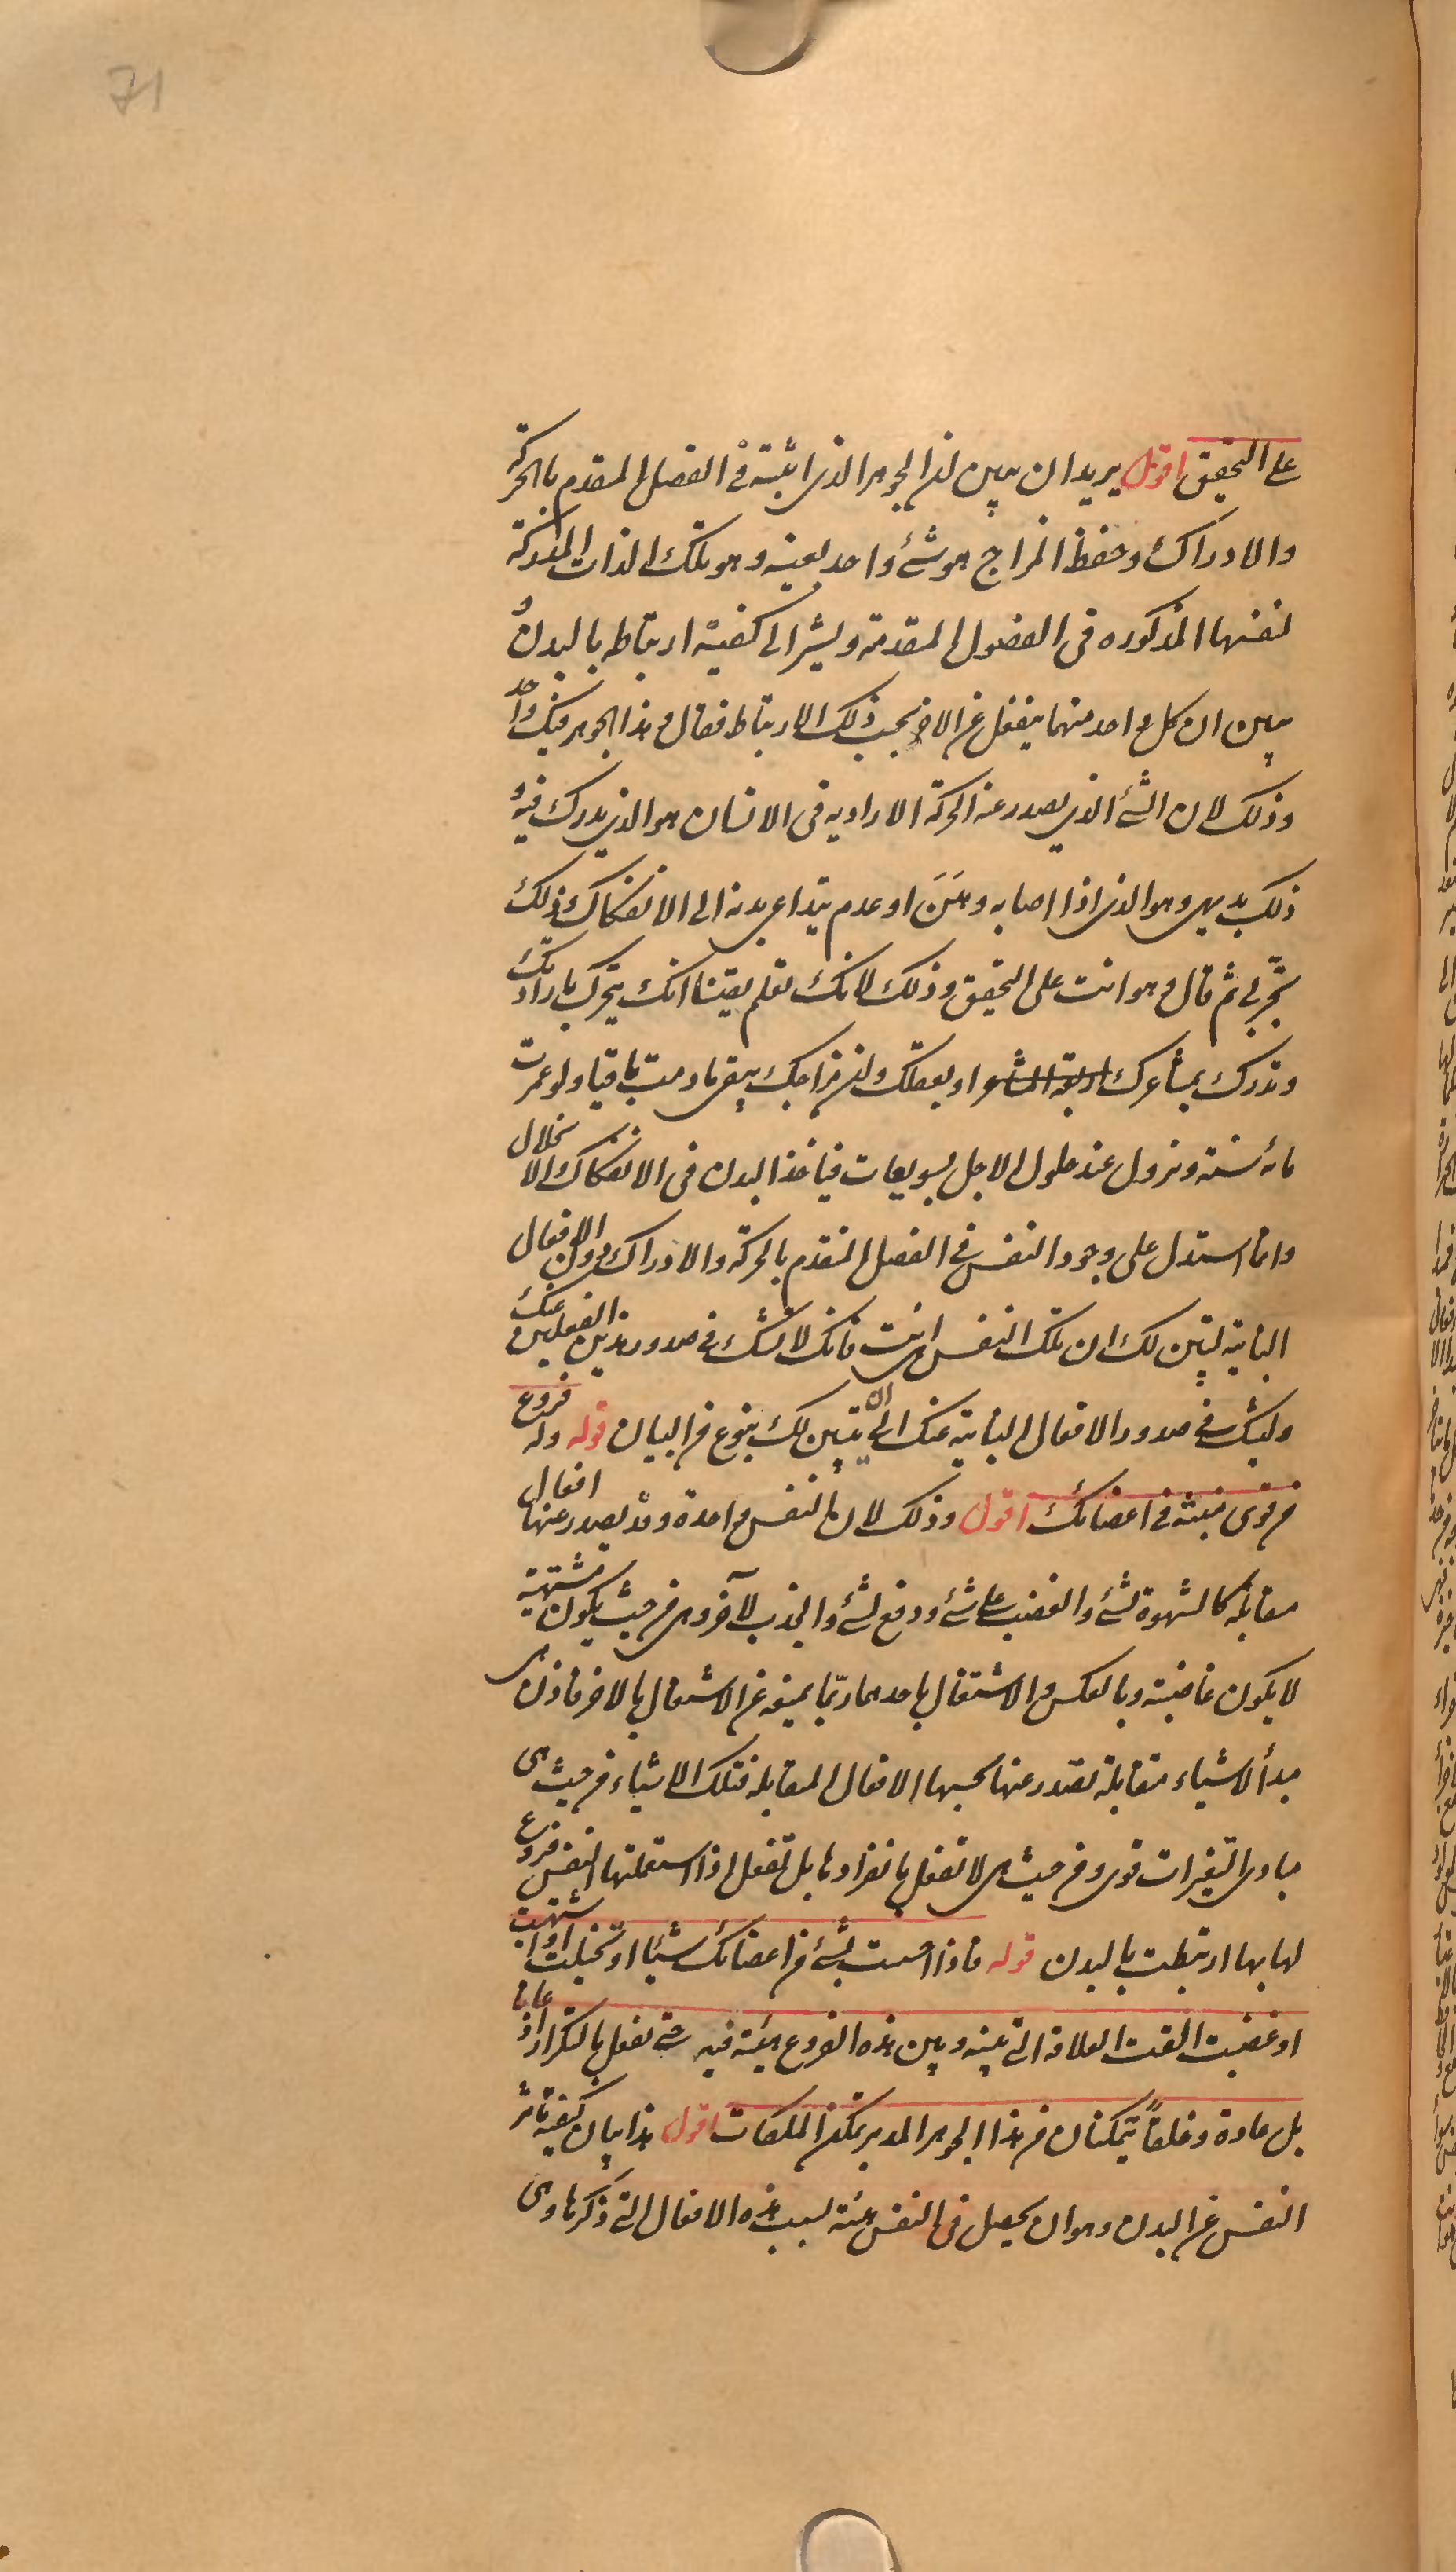 71
على التحقيق اقول يريد ان يبين ان الجوهر الذى اثبته فى الفصل المقدم بالحركة
والادراك وحفظ المزاج هو شئ واحد بعينه وهو تلك الذات المدركة
لنفسها المذكوره فى الفصول المقدمة ويشير الى كيفية ارتباطه بالبدن و
يبين ان كل واحد منهما ينفعل عن الاخر بحسب ذلك الارتباط فقال و هذا الجوهر فيك واحد
وذلك لان الشئ الذى يصدر عنه الحركة الارادية فى الانسان هو الذى يدرك فيه و
ذلك بديهى وهو الذى اذا اصابه وهَنَ او عدم يتداعى بدنه الى الانفكاك وذلك
تجربى ثم قال و هو انت على التحقيق وذلك لانك تعلم يقينا انك تتحرك بارادتك
وتدرك بمشاعرك او بعقلك وان مزاجك يبقى ما دمت باقيا ولو عمرت
مائة سنة ويزول عند حلول الاجل بسويعات فياخذ البدن فى الانفكاك والانحلال
وانما استدل على وجود النفس فى الفصل المتقدم بالحركة والادراك دون الافعال
النباتية ليتبين لك ان تلك النفس هى انت فانك لا تشك فى صدور هذين الفعلين عنك
وتشك فى صدور الافعال النباتية عنك الى ان يتبين لك بنوع من البيان قوله وله فروع
من قوى منبثة فى اعضائك اقول وذلك لان النفس واحدة وقد يصدر عنها افعال
متقابلة كالشهوة لشئ والغضب على شئ ودفع لشئ والجذب لآخر وهى من حيث يكون مشتهية
لا يكون غاضبة وبالعكس والاشتغال باحدهما ربّما يمنعه عن الاشتغال بالاخر فاذن هى
مبدأ لاشياء متقابلة تصدر عنها بحسبها الافعال المتقابلة فتلك الاشياء من حيث هى
مبادى التغيرات قوى ومن حيث هى لا تفعل بانفرادها بل تفعل اذا استعملتها النفس فروع
لها بها ارتبطت بالبدن قوله فاذا احسست بشئ من اعضائك شيئا او تخيلت او اشتهيت
او غضبت القت العلاقة التى بينه وبين هذه الفروع هيئة فيه حتى تفعل بالتكرار اذعانا ما
بل عادة وخلقاً يتمكنان من هذا الجوهر المدبر تمكن الملكات اقول هذا بيان كيفية تاثر
النفس عن البدن وهو ان يحصل فى النفس هيئة بسبب هذه الافعال التى ذكرها وهى